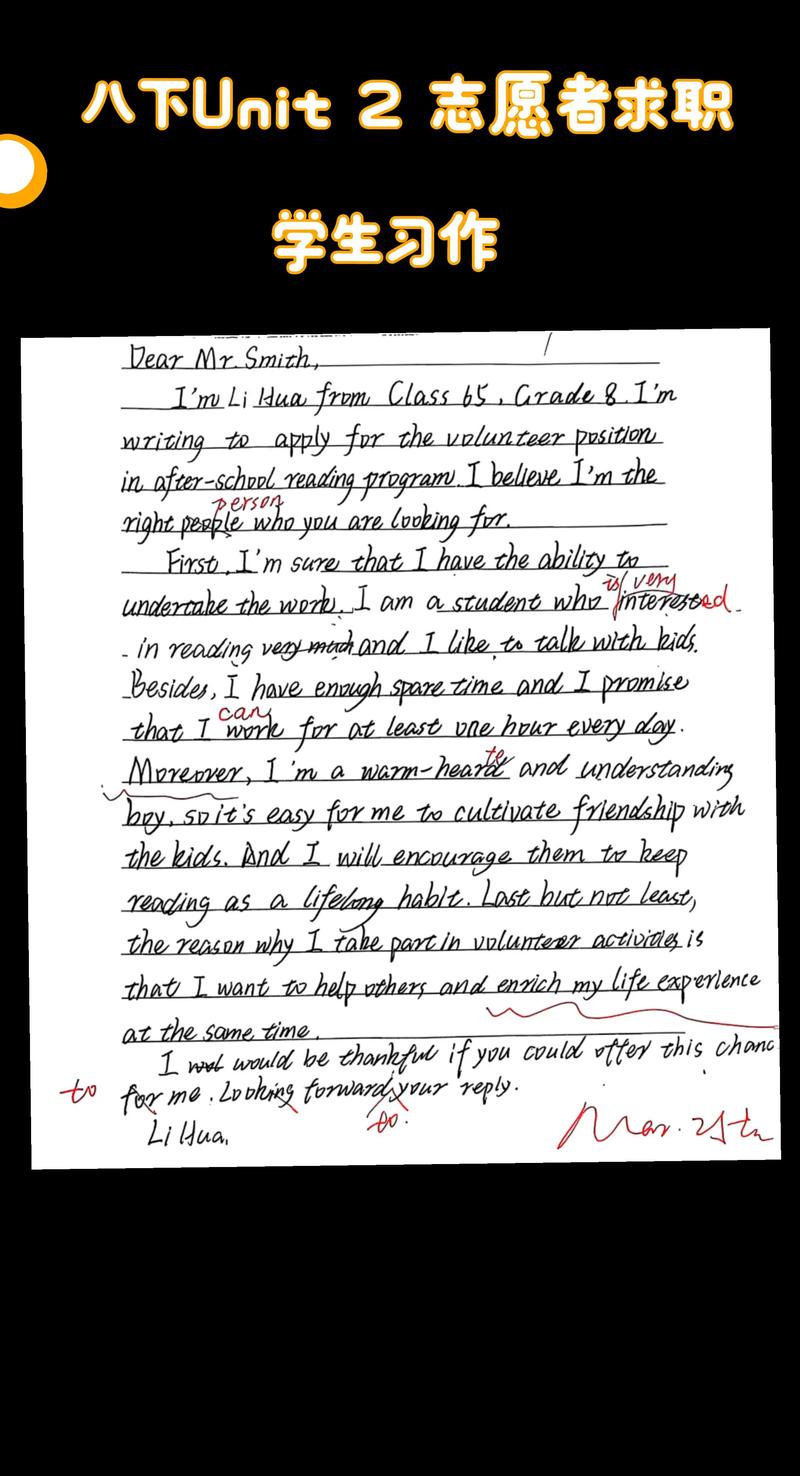 八下Unit 2 志愿者求职
学生习作
Dear Mr. Smith,
I'm Li Hua from Class 65, Grade 8. I'm
writing to apply for the volunteer position
in after-school reading program. I believe I'm the
person
right people who you are looking for.
First, I'm sure that I have the ability to
is very
undertake the work. I am a student who interested
in reading very much and I like to talk with kids.
Besides, I have enough spare time and I promise
can
that I work for at least one hour every day.
te
Moreover, I'm a warm-heard and understanding
boy, so it's easy for me to cultivate friendship with
the kids. And I will encourage them to keep
reading as a lifelong habit. Last but not least,
the reason why I take part in volunteer activities is
that I want to help others and enrich my life experience
at the same time.
I would be thankful if you could offer this chanc
to for me. Looking forward your reply.
to.
Li Hua.
Mar. 25th